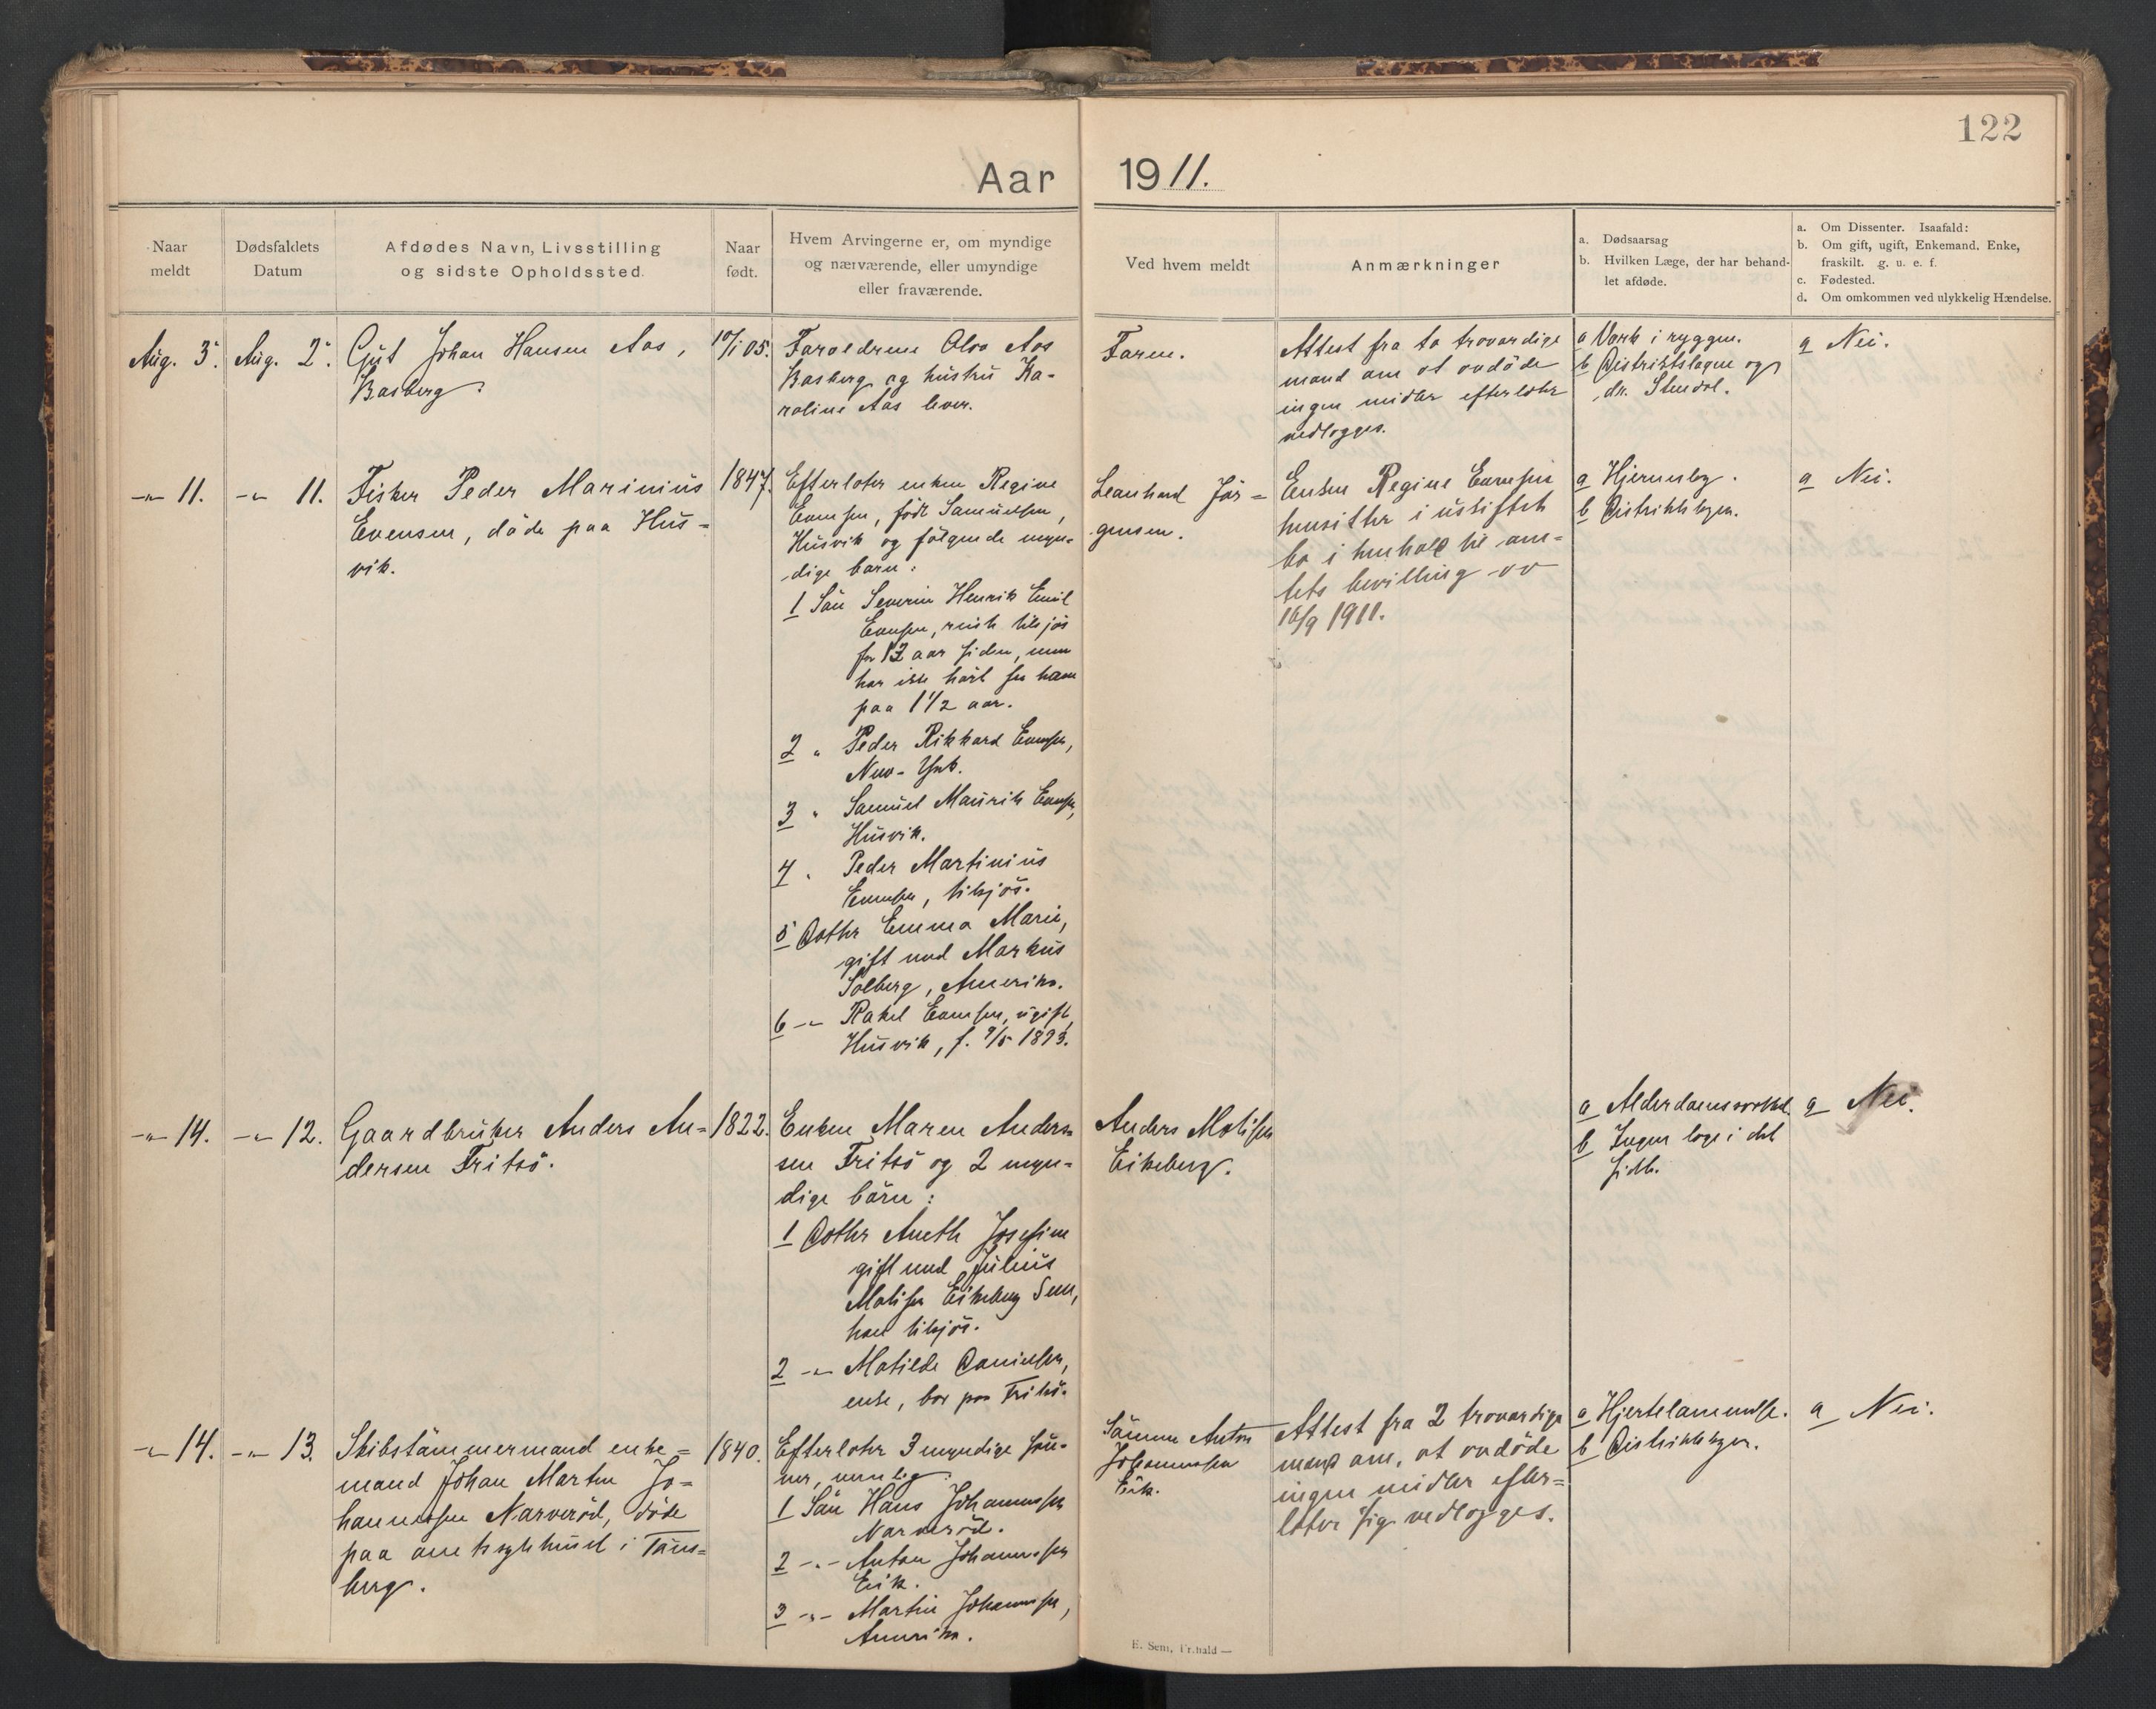 122
Aar 1911.
Naar
meldt
Dødsfaldets
Datum
Afdødes Navn, Livsstilling
og sidste Opholdssted.
Naar
født.
Hvem Arvingerne er, om myndige
og nærværende, eller umyndige
eller fraværende.
Ved hvem meldt
Anmærkninger
a. Dødsaarsag
b. Hvilken Læge, der har behand-
let afdøde.
a. Om Dissenter. Isaafald:
b. Om gift, ugift, Enkemand, Enke,
fraskilt. g. u. e. f.
c. Fødested.
d. Om omkommen ved ulykkelig Hændelse.
Aug. 3. Aug. 2.
Gut Johan Hansen Aas,
Basberg.
10/1 05.
Forældrene Olav Aas
Basberg og hustru Ka-
roline Aas lever.
Faren.
Attest fra to troværdige
mænd om at avdøde
ingen midler efterlater
vedlægges.
a Værk i ryggen.
b Distriktslægen og
dr. Stendal.
a Nei.
-"- 11. -"- 11.
Fisker Peder Marinius
Evensen, døde paa Hus-
vik.
1847.
Efterlater enken Regine
Evensen, født Samuelsen,
Husvik og følgende myn-
dige barn:
1 Søn Severin Henrik Emil
Evensen, reiste tilsjøs
for 12 aar siden, men
har ikke hørt fra ham
paa 1 1/2 aar.
2 " Peder Rikkard Evensen,
New-York.
3 " Samuel Maurits Evensen,
Husvik.
4 " Peder Martinius
Evensen, tilsjøs.
5 Datter Emma Marie,
gift med Markus
Solberg, Amerika.
6 -"- Rakel Evensen, ugift,
Husvik, f. 9/5 1893.
Leonhard Jør-
gensen.
Enken Regine Evensen
hensitter i uskiftet
bo i henhold til am-
tets bevilling av
16/9 1911.
a Hjerneslag.
b Distriktslægen.
a Nei.
-"- 14. -"- 12.
Gaardbruker Anders An-
dersen Fritsø.
1822.
Enken Maren Ander-
sen Fritsø og 2 myn-
dige børn:
1 Datter Anette Josefine
gift med Julius
Matisen Eikeberg Sem,
han tilsjøs.
2 -"- Matilde Danielsen,
enke, bor paa Fritsø.
Anders Matisen
Eikeberg.
a Alderdomssvakhet.
b Ingen læge i det
sidste.
a Nei.
-"- 14. -"- 13.
Skibstømmermand enke-
mand Johan Martin Jo-
hannessen Narverød, døde
paa amtssykehuset i Tøns-
berg.
1840.
Efterlater 3 myndige søn-
ner, nemlig:
1 Søn Hans Johannessen
Narverød.
2 -"- Anton Johannessen
Eik.
3 -"- Martin Johannessen,
Amerika.
Sønnen Anton
Johannessen
Eik.
Attest fra 2 troværdige
mænd om, at avdøde
ingen midler efter-
later sig vedlægges.
a Hjertelammelse.
b Distriktslægen.
a Nei.
E. Sem, Fr.hald —